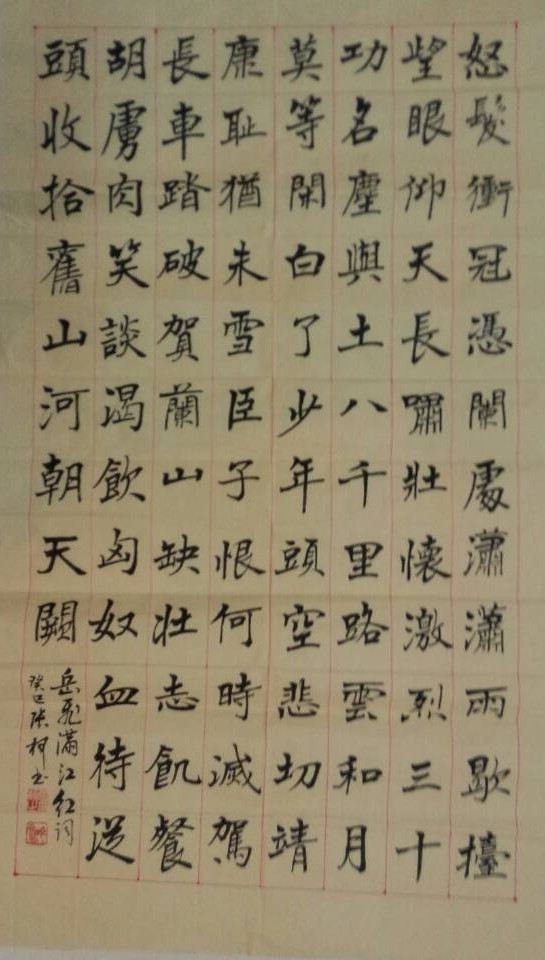 怒髮衝冠憑闌處瀟瀟雨歇擡
望眼仰天長嘯壯懷激烈三十
功名塵與土八千里路雲和月
莫等閑白了少年頭空悲切靖
康恥猶未雪臣子恨何時滅駕
長車踏破賀蘭山缺壯志飢餐
胡虜肉笑談渴飲匈奴血待從
頭收拾舊山河朝天闕
岳飛滿江红词
癸巳陈柯书